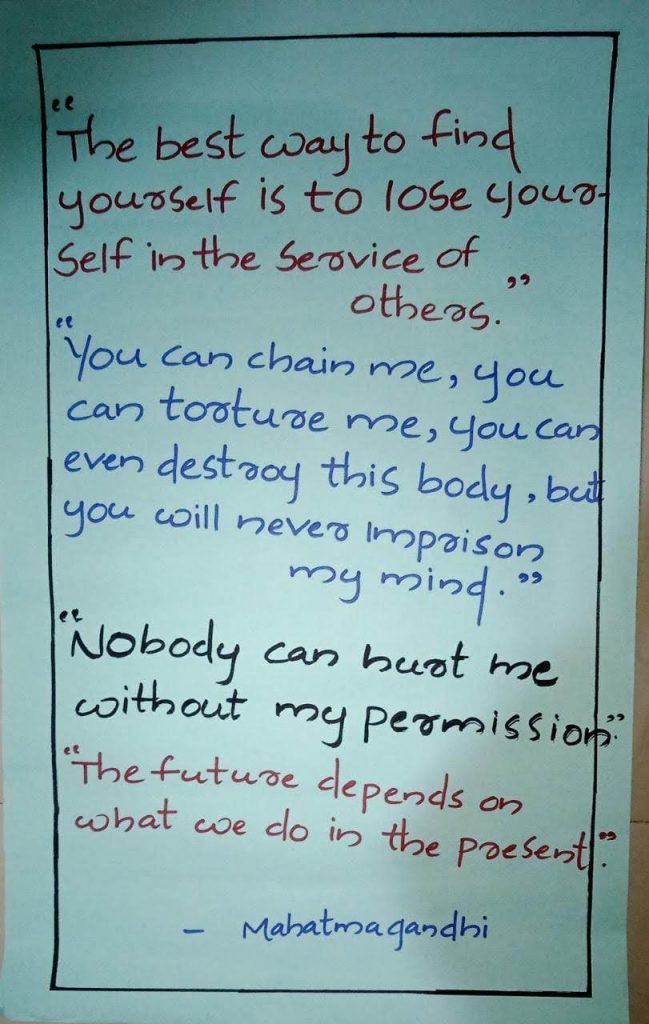 "The best way to find
yourself is to lose your-
self in the service of
others."
"You can chain me, you
can torture me, you can
even destroy this body, but
you will never imprison
my mind."
"Nobody can hurt me
without my permission."
"The future depends on
what we do in the present."
- Mahatma gandhi